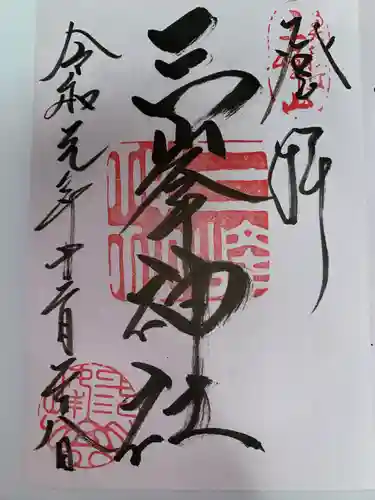 登拝
三峯神社
令和元年十二月廿八日